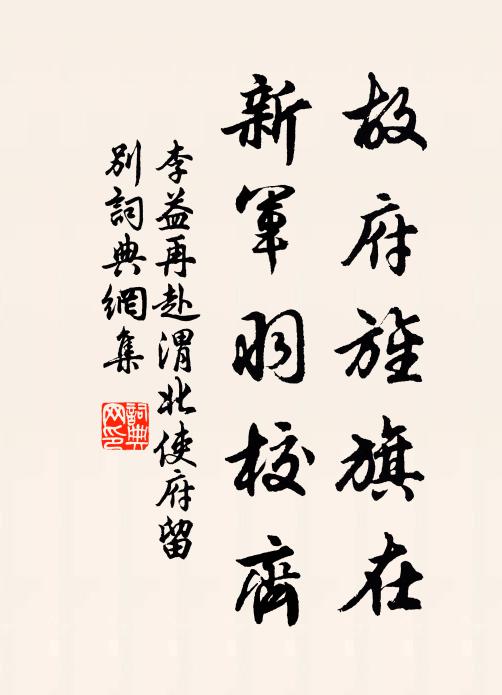 故府旌旗在
新軍羽校齊
李益再赴渭北使府留
別詞典網集
詞典
网印